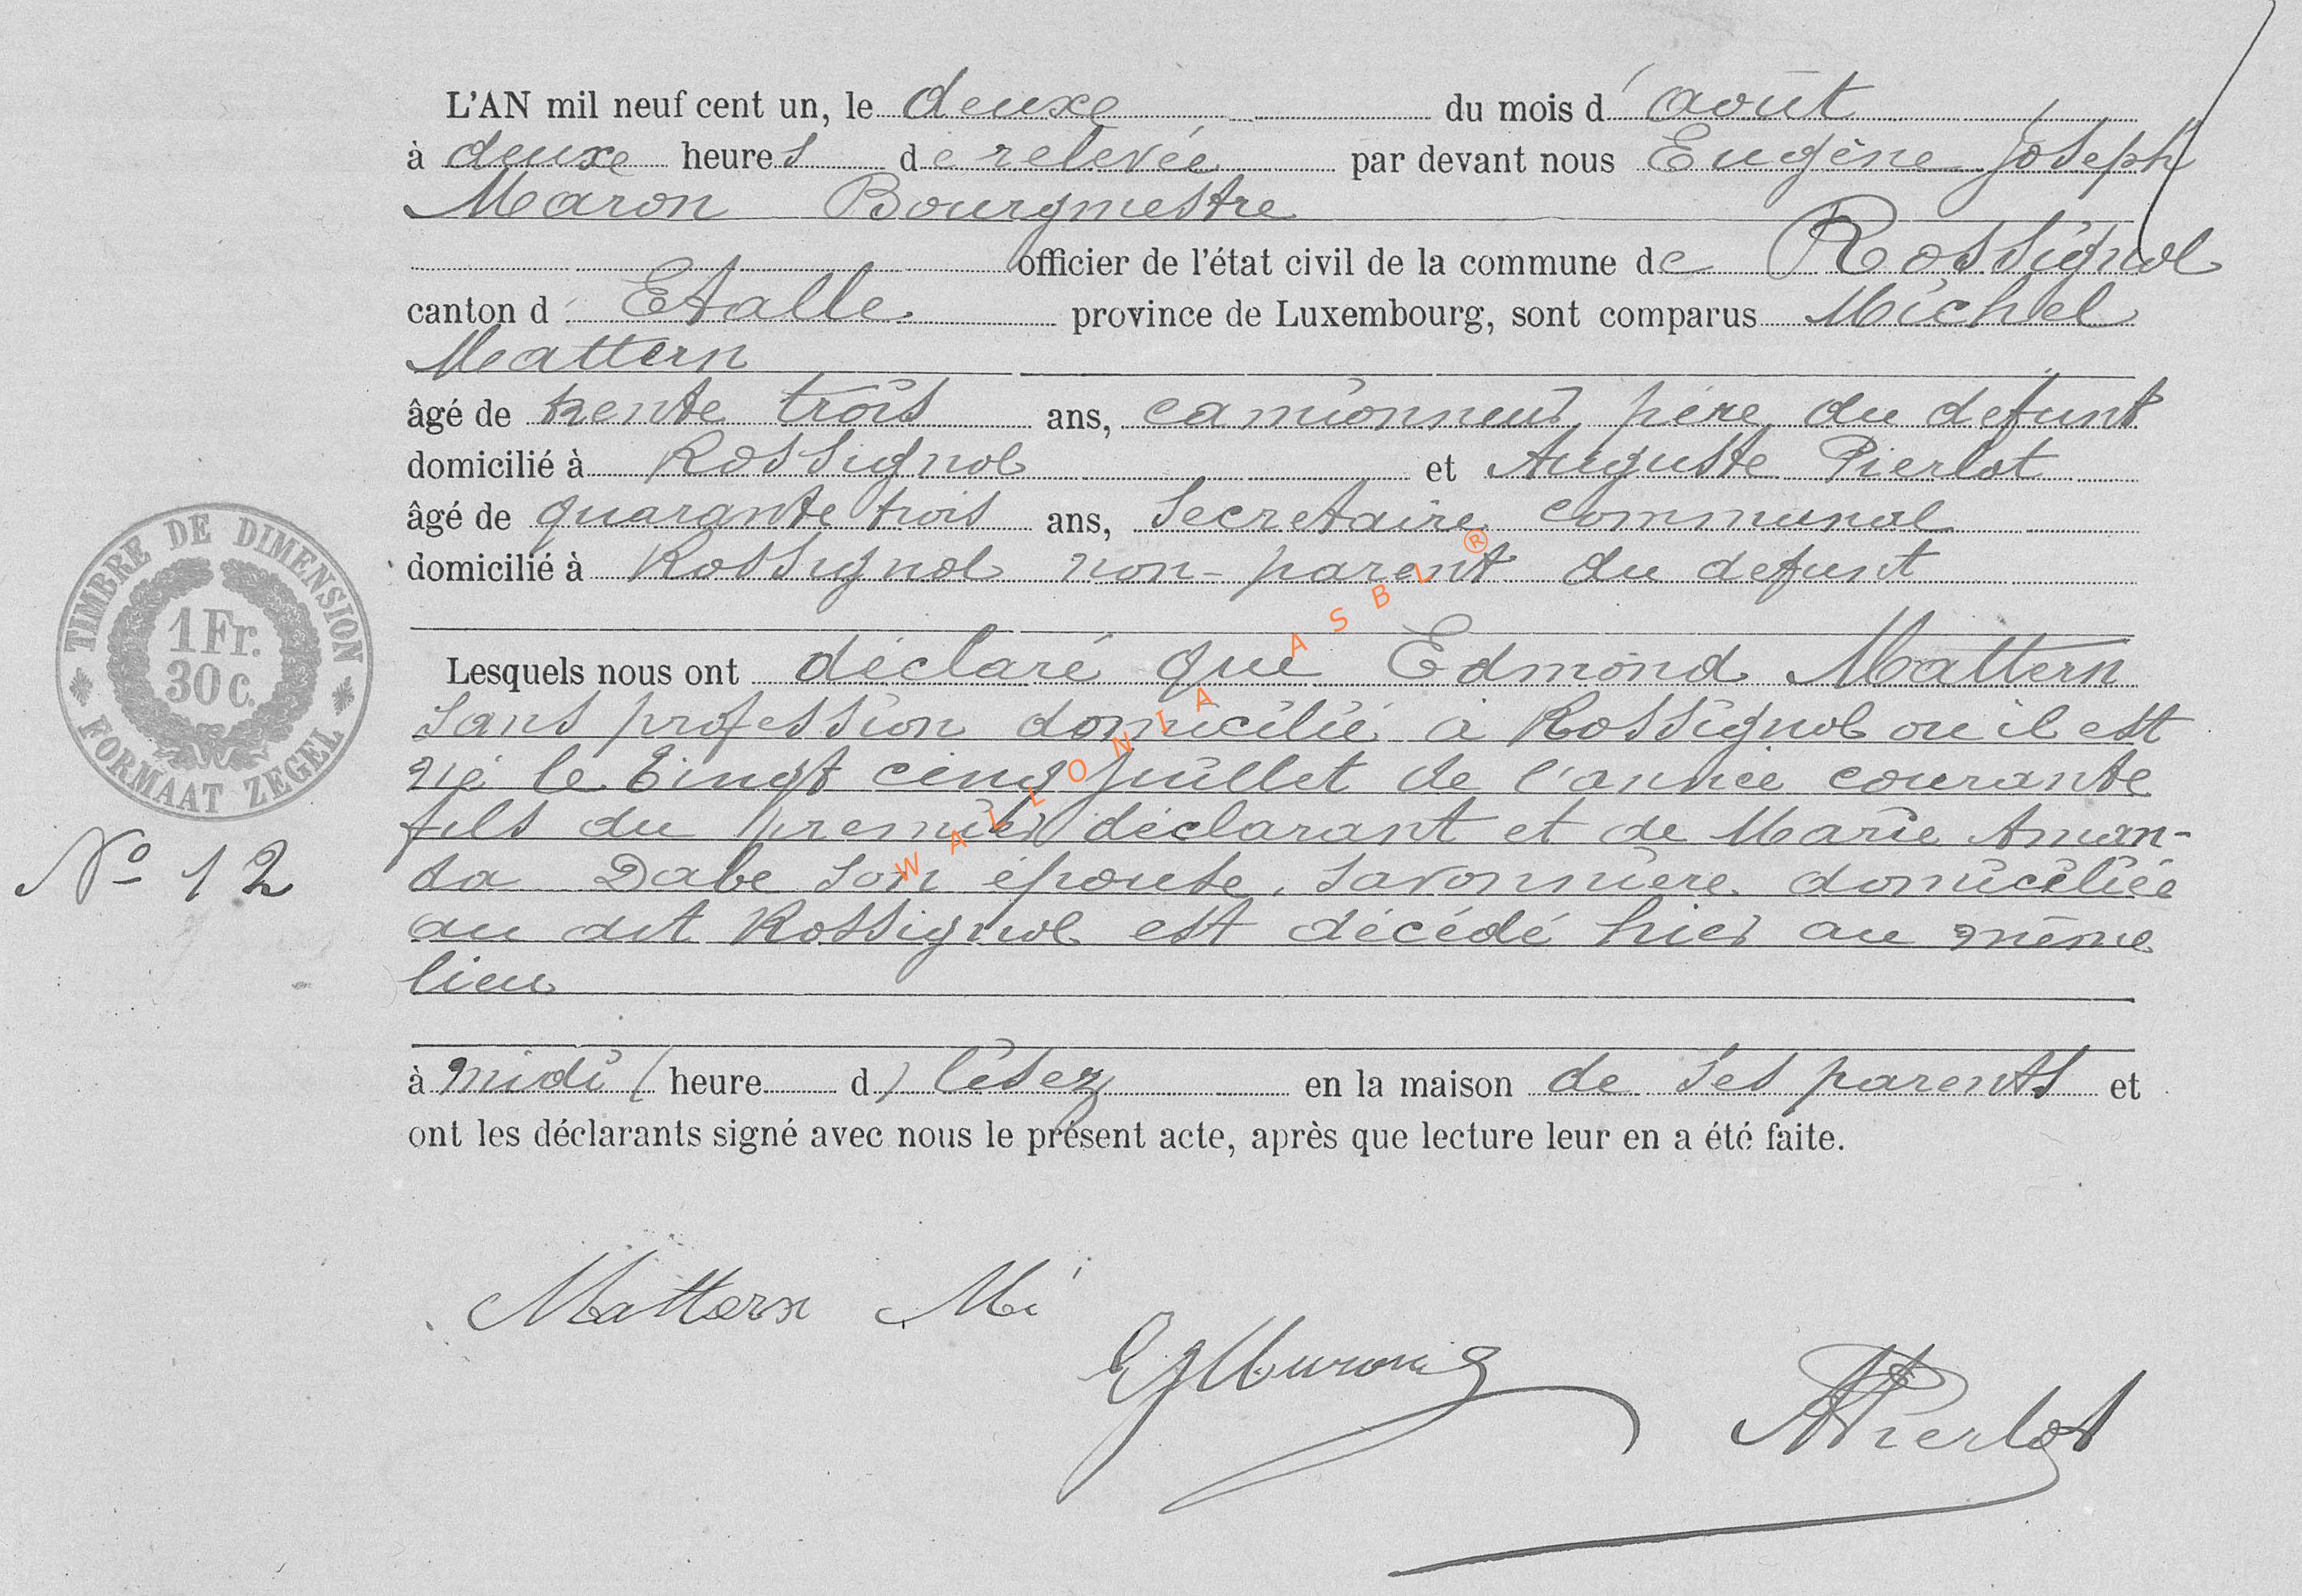 L'AN mil neuf cent un, le deuxe du mois d'août
à deuxe heures de relevée par devant nous Eugène Joseph
Maron Bourgmestre
officier de l'état civil de la commune de Rossignol
canton d'Etalle province de Luxembourg, sont comparus Michel
Mattern
âgé de trente trois ans, camionneur, père du defunt
domicilié à Rossignol et Auguste Pierlot
âgé de quarante trois ans, Secretaire communal
domicilié à Rossignol non-parent du defunt
Lesquels nous ont déclaré que Edmond Mattern
sans profession domicilié à Rossignol ou il est
né le vingt cinq juillet de l'année courante
fils du premier déclarant et de Marie Aman-
da Dabe son épouse, savonnière domiciliée
au dit Rossignol est décédé hier au même
lieu
à midi ( heure d ) lisez en la maison de ses parents et
ont les déclarants signé avec nous le présent acte, après que lecture leur en a été faite.
TIMBRE DE DIMENSION
1 Fr.
30 c.
FORMAAT ZEGEL
N° 12
Mattern Mi
EJ Maron
A Pierlot
WALLONIA ASBL ®